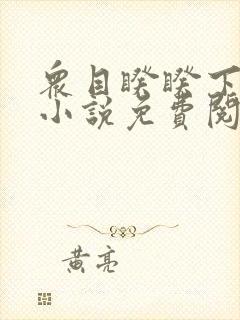 眾目睽睽下
小說免費閱
黃亮